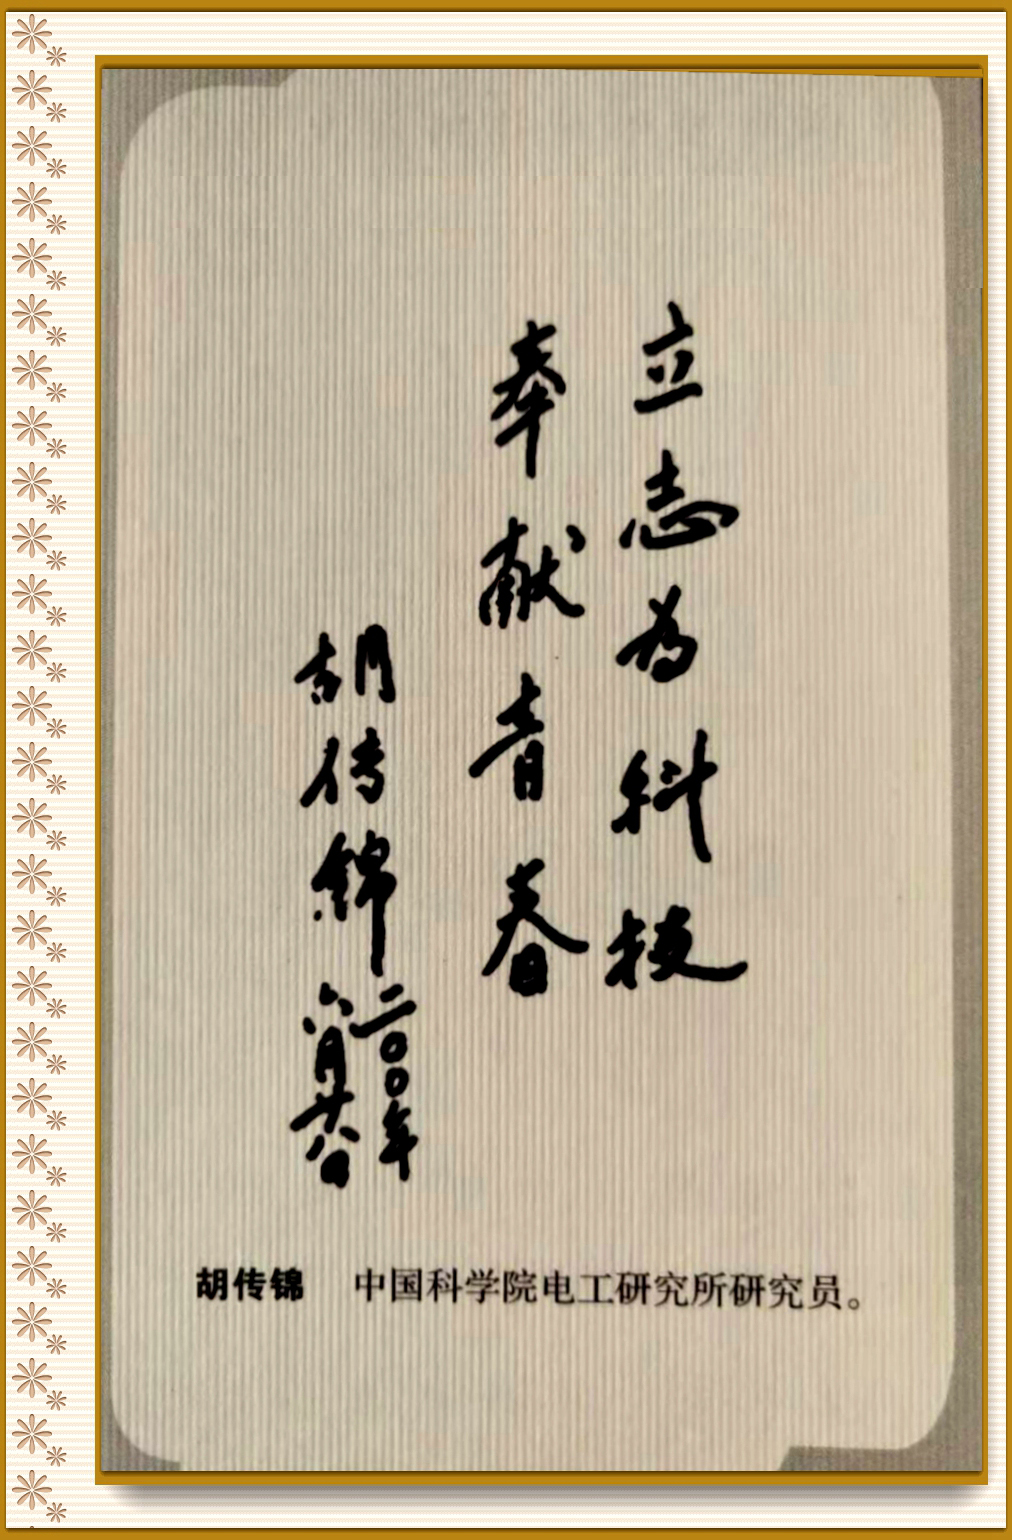 立志为科技
奉献青春
胡传錦
二〇〇年
六月廿八日
胡传锦 中国科学院电工研究所研究员。